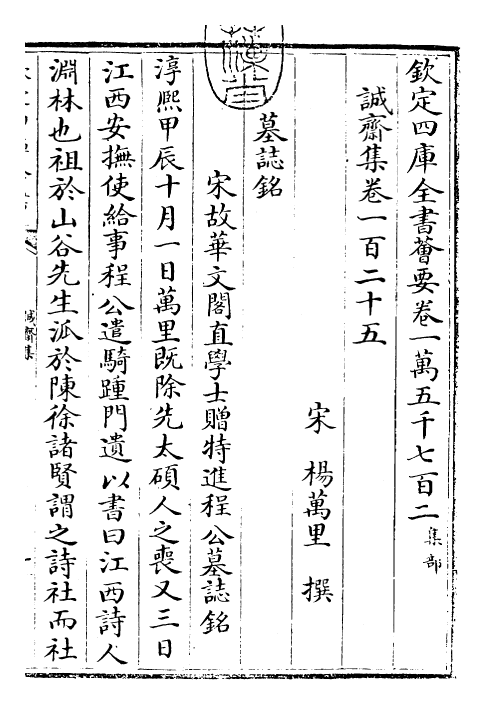 欽定四庫全書薈要卷一萬五千七百二集部
誠齋集卷一百二十五
宋楊萬里撰
墓誌銘
宋故華文閣直學士贈特進程公墓誌銘
淳熙甲辰十月一日萬里既除先太碩人之喪又三日
江西安撫使給事程公遣騎踵門遺以書曰江西詩人
淵林也祖於山谷先生派於陳徐諸賢謂之詩社而社
誠齋集